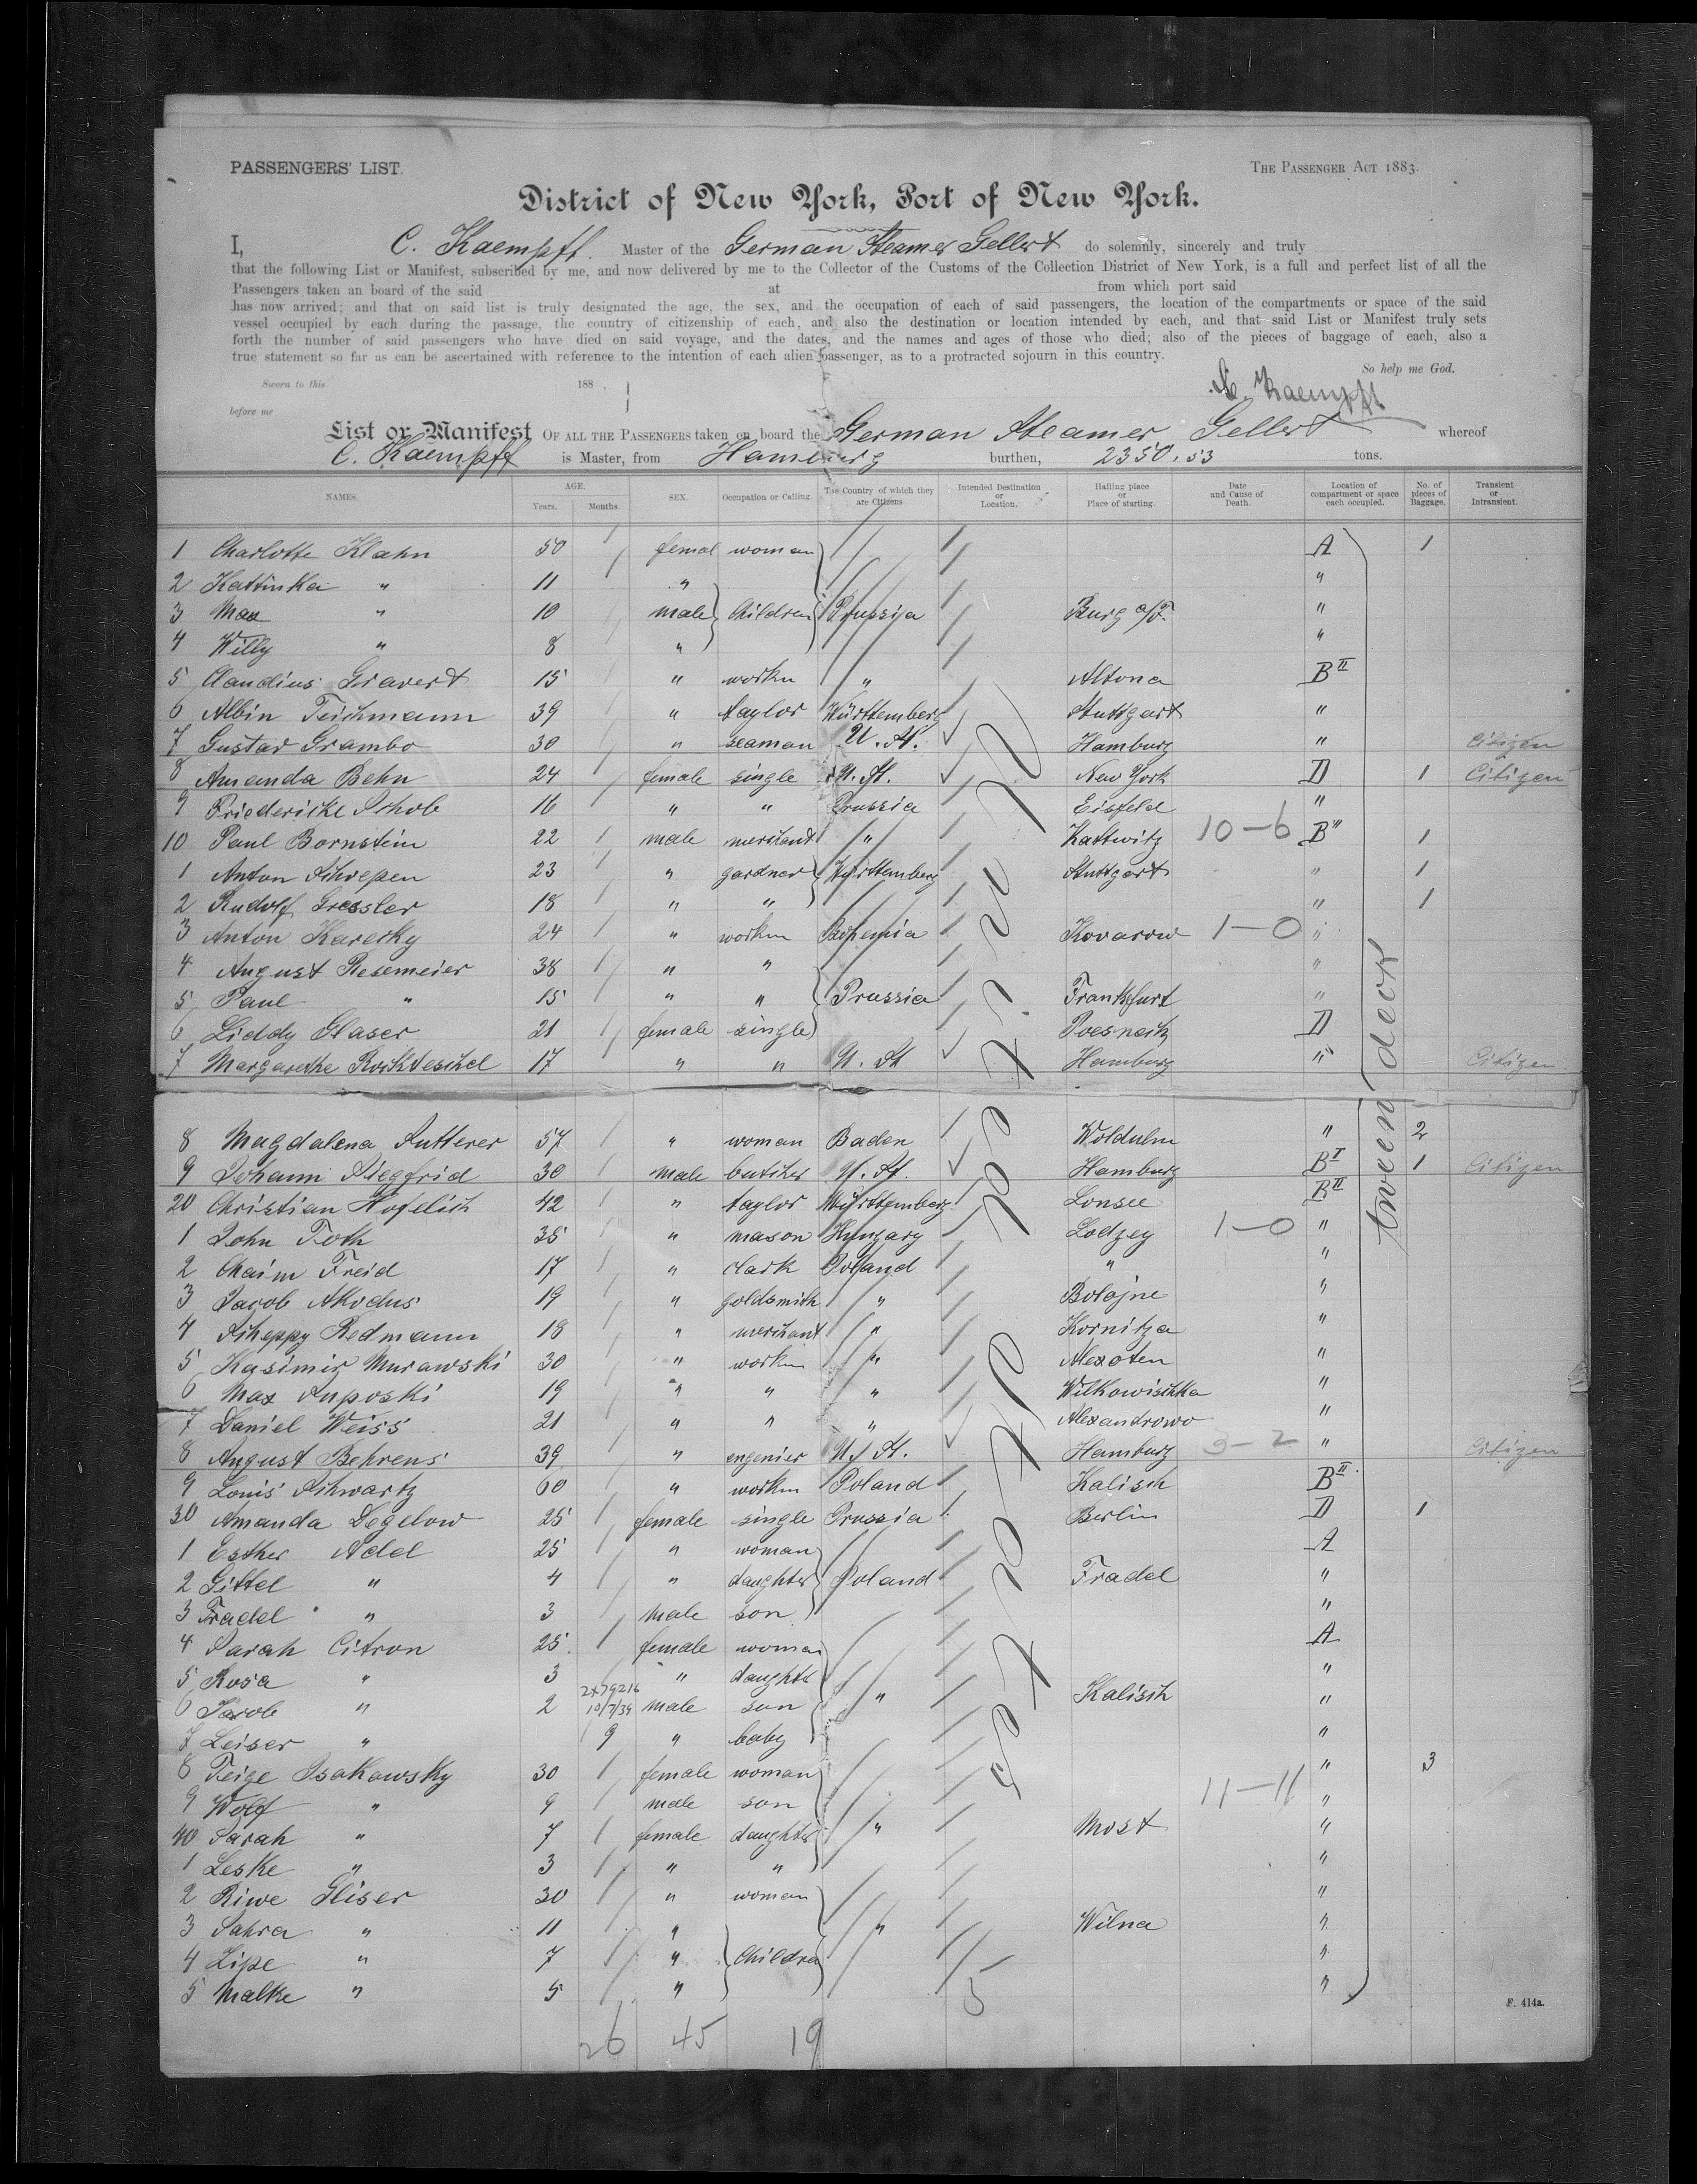 PASSENGERS' LIST.
THE PASSENGER ACT 1883.
District of New York, Port of New York.
I, C. Kaempff. Master of the German Steamer Gellert do solemnly, sincerely and truly
that the following List or Manifest, subscribed by me, and now delivered by me to the Collector of the Customs of the Collection District of New York, is a full and perfect list of all the
Passengers taken an board of the said at from which port said
has now arrived; and that on said list is truly designated the age, the sex, and the occupation of each of said passengers, the location of the compartments or space of the said
vessel occupied by each during the passage, the country of citizenship of each, and also the destination or location intended by each, and that said List or Manifest truly sets
forth the number of said passengers who have died on said voyage, and the dates, and the names and ages of those who died; also of the pieces of baggage of each, also a
true statement so far as can be ascertained with reference to the intention of each alien passenger, as to a protracted sojourn in this country.
So help me God.
Sworn to this 188 .
C. Kaempff
before me
List or Manifest OF ALL THE PASSENGERS taken on board the German Steamer Gellert whereof
C. Kaempff is Master, from Hamburg burthen, 2350.53 tons.
NAMES. AGE. Years. Months. SEX. Occupation or Calling. The Country of which they are Citizens Intended Destination or Location. Hailing place or Place of starting. Date and Cause of Death. Location of compartment or space each occupied. No. of pieces of Baggage. Transient or Intransient.
1 Charlotte Klahn 50 femal woman A 1
2 Kattinka " 11 " "
3 Max " 10 male Children Prussia Burg a/F. "
4 Willy " 8 " "
5 Claudius Gravert 15 " workm " Altona B II
6 Albin Teichmann 39 " taylor Württemberg Stuttgart "
7 Gustav Grambo 30 " seaman U. St. Hamburg " Citizen
8 Amanda Behn 24 female single U. St. New York D 1 Citizen
9 Friedericke Schob 16 " " Prussia Eisfeld "
10 Paul Bornstein 22 male merchant " Kattwitz 10-6 B" 1
1 Anton 23 " gardner Württemberg Stuttgart " 1
2 Rudolf Gressler 18 " " " 1
3 Anton Karecky 24 " workm Bohemia Kovarow 1-0 "
4 August Resemeier 38 " " "
5 Paul " 15 " " Prussia Frankfurt "
6 Liddy Glaser 21 female single Poesneck D
7 Margarethe 17 " " U. St Hamburg " Citizen
8 Magdalena Sutterer 57 " woman Baden Woldulm " 2
9 Johann Siegfrid 30 male butcher U. St. Hamburg B I 1 Citizen
20 Christian Hofelich 42 " taylor Württemberg Lonsee B II
1 John Toth 35 " mason Hungary Lodzey 1-0 "
2 Chaim Freid 17 " clark Poland " "
3 Jacob Akodus 19 " goldsmith " Bolojne "
4 Scheppy Redmann 18 " merchant " Kornitza "
5 Kasimir Murawski 30 " workm " Alexoten "
6 Max Suposki 19 " " " Wilkowischka "
7 Daniel Weiss 21 " " " Alexandrowo "
8 August Behrens 39 " engenier U. St. Hamburg 3-2 " Citizen
9 Louis Schwartz 60 " workm Poland Kalisch B II
30 Amanda Degelow 25 female single Prussia Berlin D 1
1 Esther Adel 25 " woman A
2 Gittel " 4 " daughter Poland Fradel "
3 Fradel " 3 male son "
4 Sarah Citron 25 female woman A
5 Rosa " 3 " daughte "
6 Jacob " 2 2x79216 10/7/39 male son " Kalisch "
7 Leiser " 9 " baby "
8 Feige Isakowsky 30 female woman " 3
9 Wolf " 9 male son 11-11 "
40 Sarah " 7 female daughter " Most "
1 Leske " 3 " " "
2 Riwe Gliser 30 " woman "
3 Sahra " 11 " " Wilna "
4 Lipe " 7 " Childre "
5 Malke " 5 " "
tween deck
5
F. 414a.
26 45 19